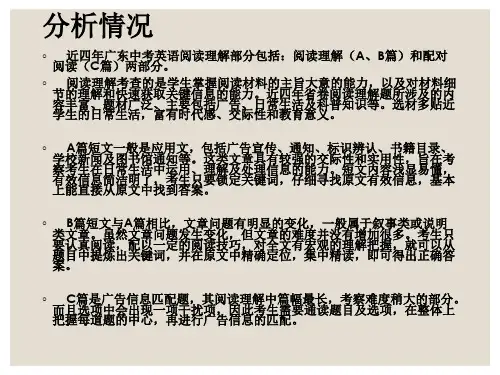 分析情况
近四年广东中考英语阅读理解部分包括：阅读理解（A、B篇）和配对
阅读（C篇）两部分。
阅读理解考查的是学生掌握阅读材料的主旨大意的能力，以及对材料细
节的理解和快速获取关键信息的能力。近四年省卷阅读理解题所涉及的内
容丰富、题材广泛、主要包括广告、日常生活及科普知识等。选材多贴近
学生的日常生活，富有时代感、交际性和教育意义。
A篇短文一般是应用文，包括广告宣传、通知、标识辨认、书籍目录、
学校新闻及图书馆通知等。这类文章具有较强的交际性和实用性，旨在考
察考生在日常生活中运用、理解及处理信息的能力。短文内容浅显易懂，
有效信息简洁明了，考生只要锁定关键词，仔细寻找原文有效信息，基本
上能直接从原文中找到答案。
B篇短文与A篇相比，文章问题有明显的变化，一般属于叙事类或说明
类文章。虽然文章问题发生变化，但文章的难度并没有增加很多。考生只
要认真阅读，配以一定的阅读技巧，对全文有宏观的理解把握，就可以从
题目中提炼出关键词，并在原文中精确定位，集中精读，即可得出正确答
案。
C篇是广告信息匹配题，其阅读理解中篇幅最长，考察难度稍大的部分。
而且选项中会出现一项干扰项，因此考生需要通读题目及选项，在整体上
把握每道题的中心，再进行广告信息的匹配。